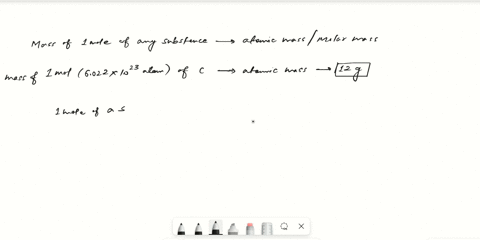 Mass of 1 mole of any substance → atomic mass / Molar mass
mass of 1 mol (6.022 × 10^23 atom) of C → atomic mass → 12 g
1 mole of a s